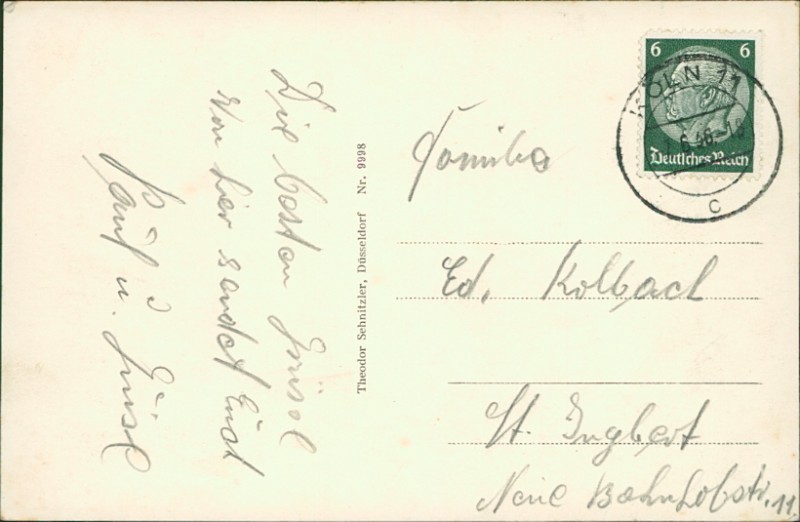 Die besten Grüsse
Von hier sendet Euch
Theodor Sehnitzler, Düsseldorf Nr. 9998
Familie
Ed. Kolbach
St. Ingbert
Neue Bahnhofstr. 11.
6 6
Deutsches Reich
KÖLN 11
c